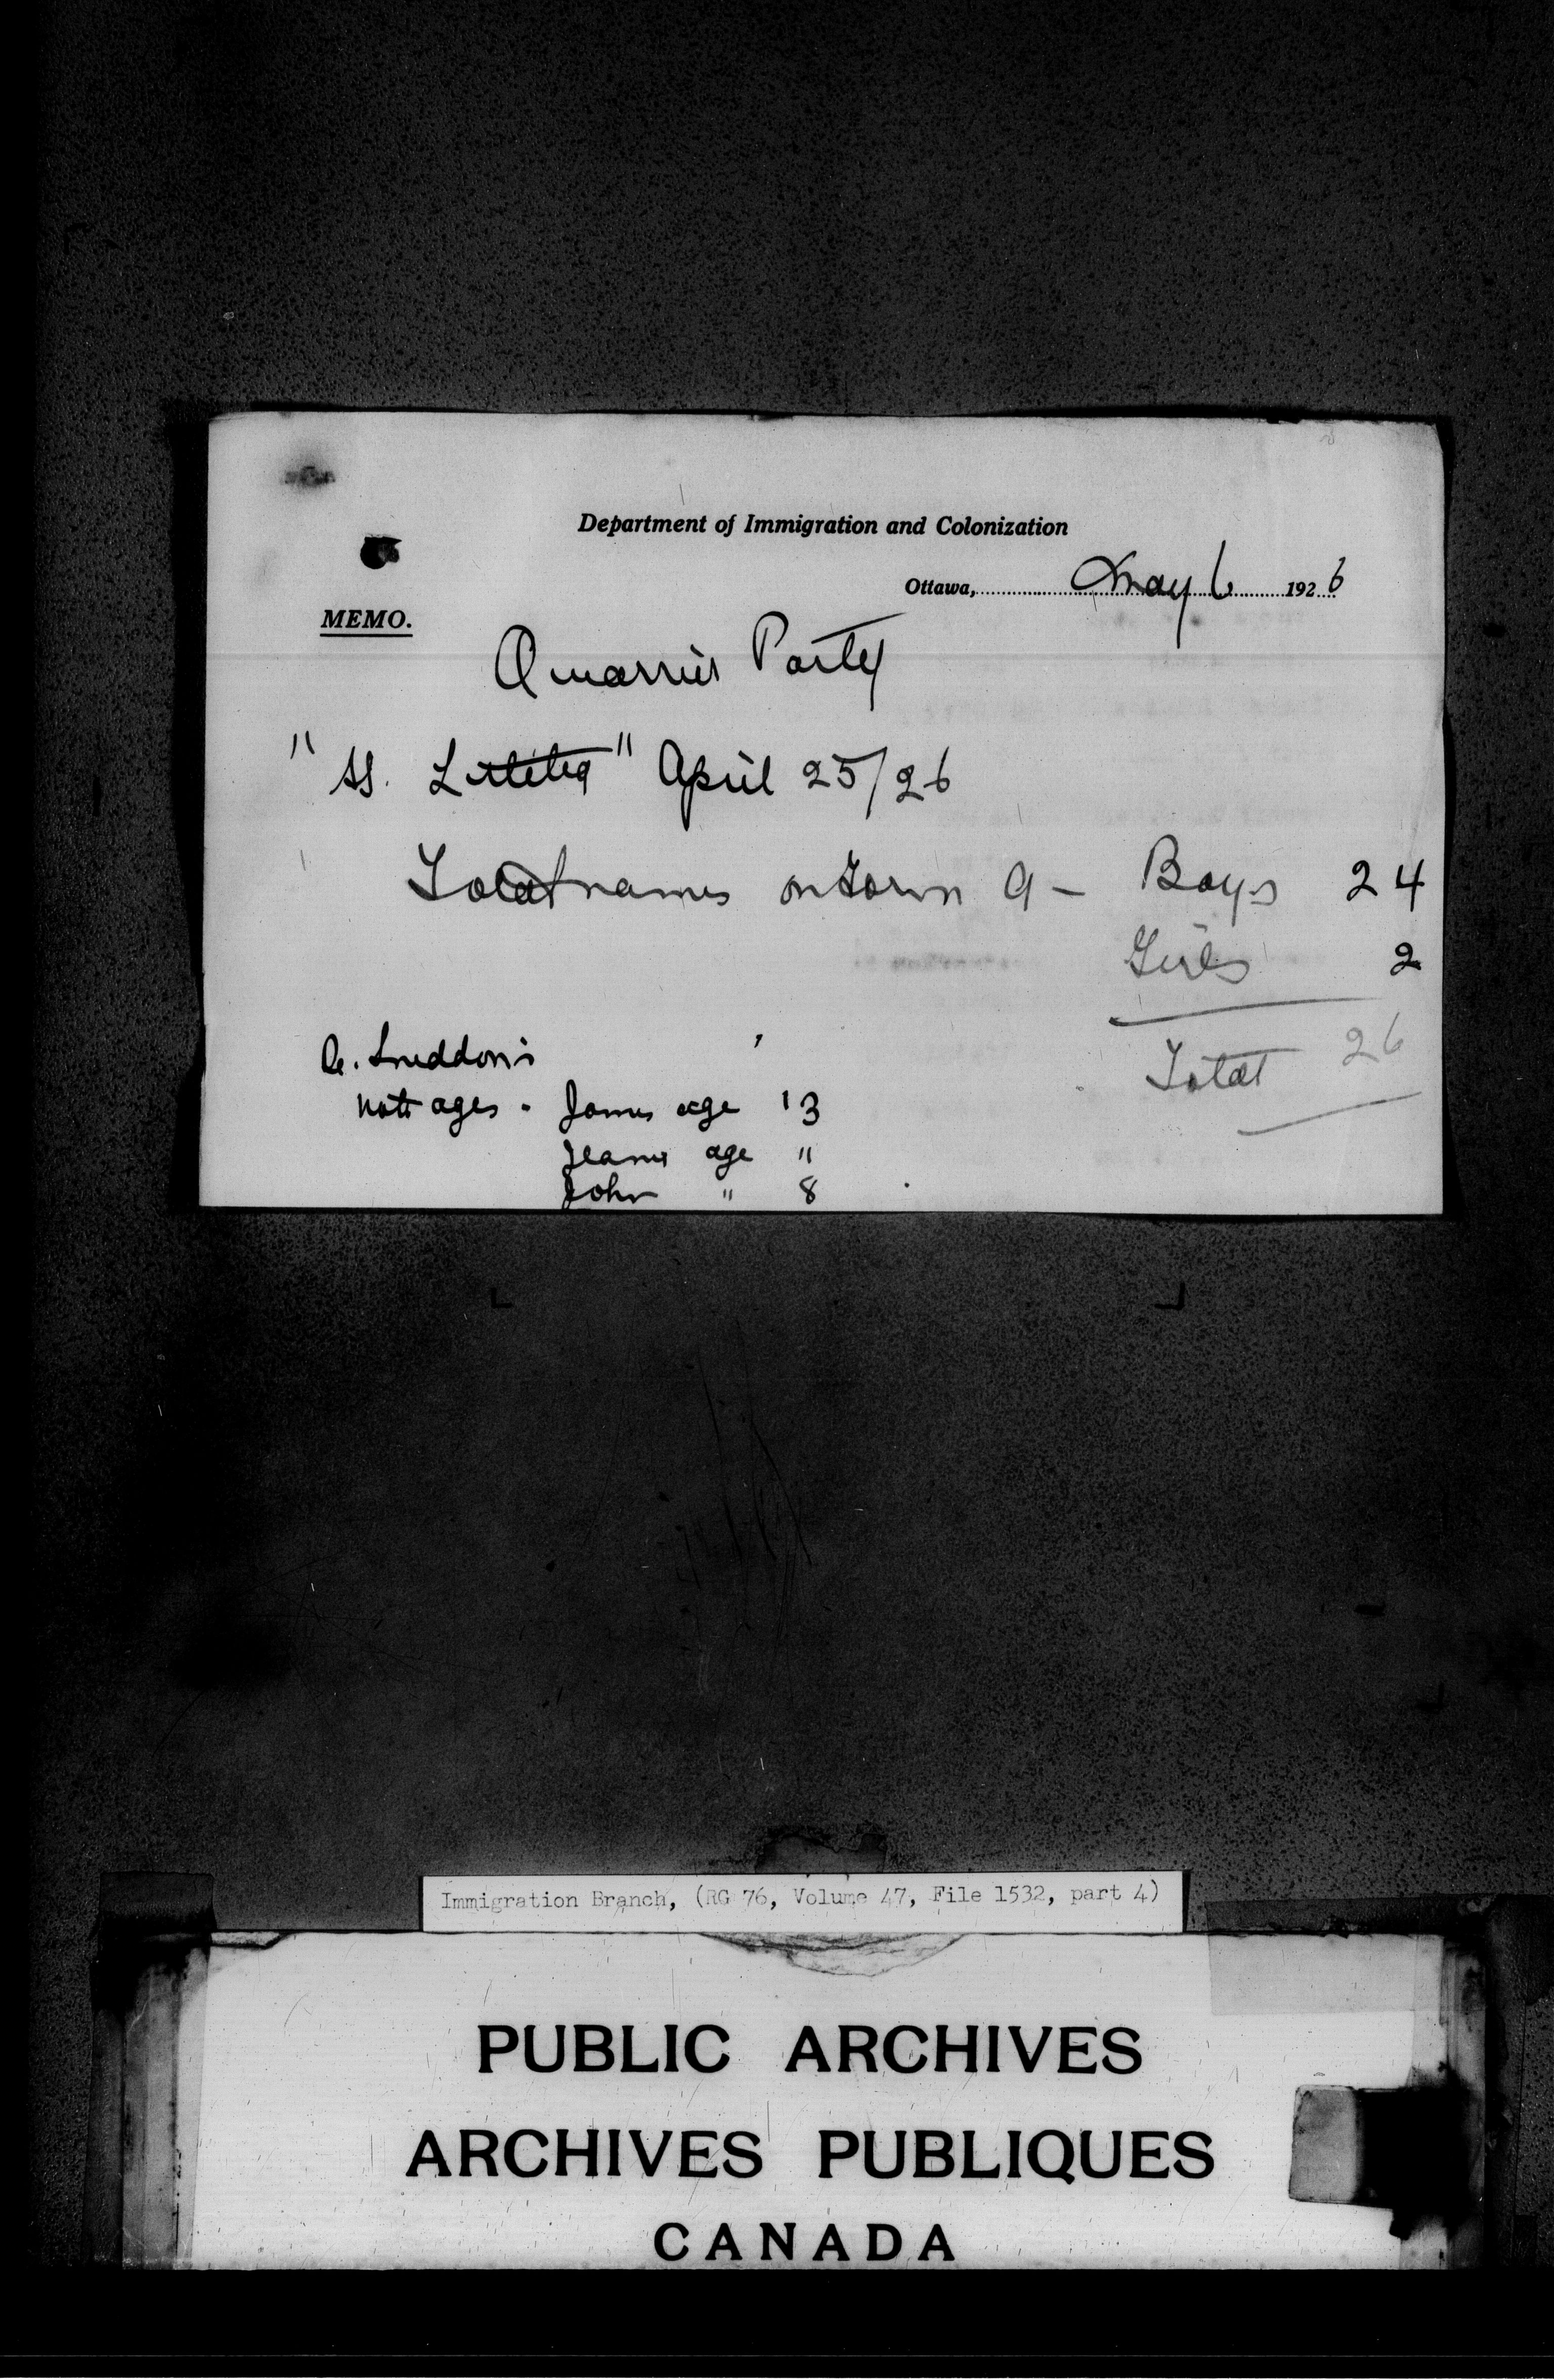 Department of Immigration and Colonization
Ottawa, May 6 1926
MEMO.
Quarrier Party
"SS. Letitia" April 25/26
Total names on Form A - Boys 24
Girls 2
Total 26
Sneddon's
note ages - James age 13
Jeanie age "
John " 8
Immigration Branch, (RG 76, Volume 47, File 1532, part 4)
PUBLIC ARCHIVES
ARCHIVES PUBLIQUES
CANADA